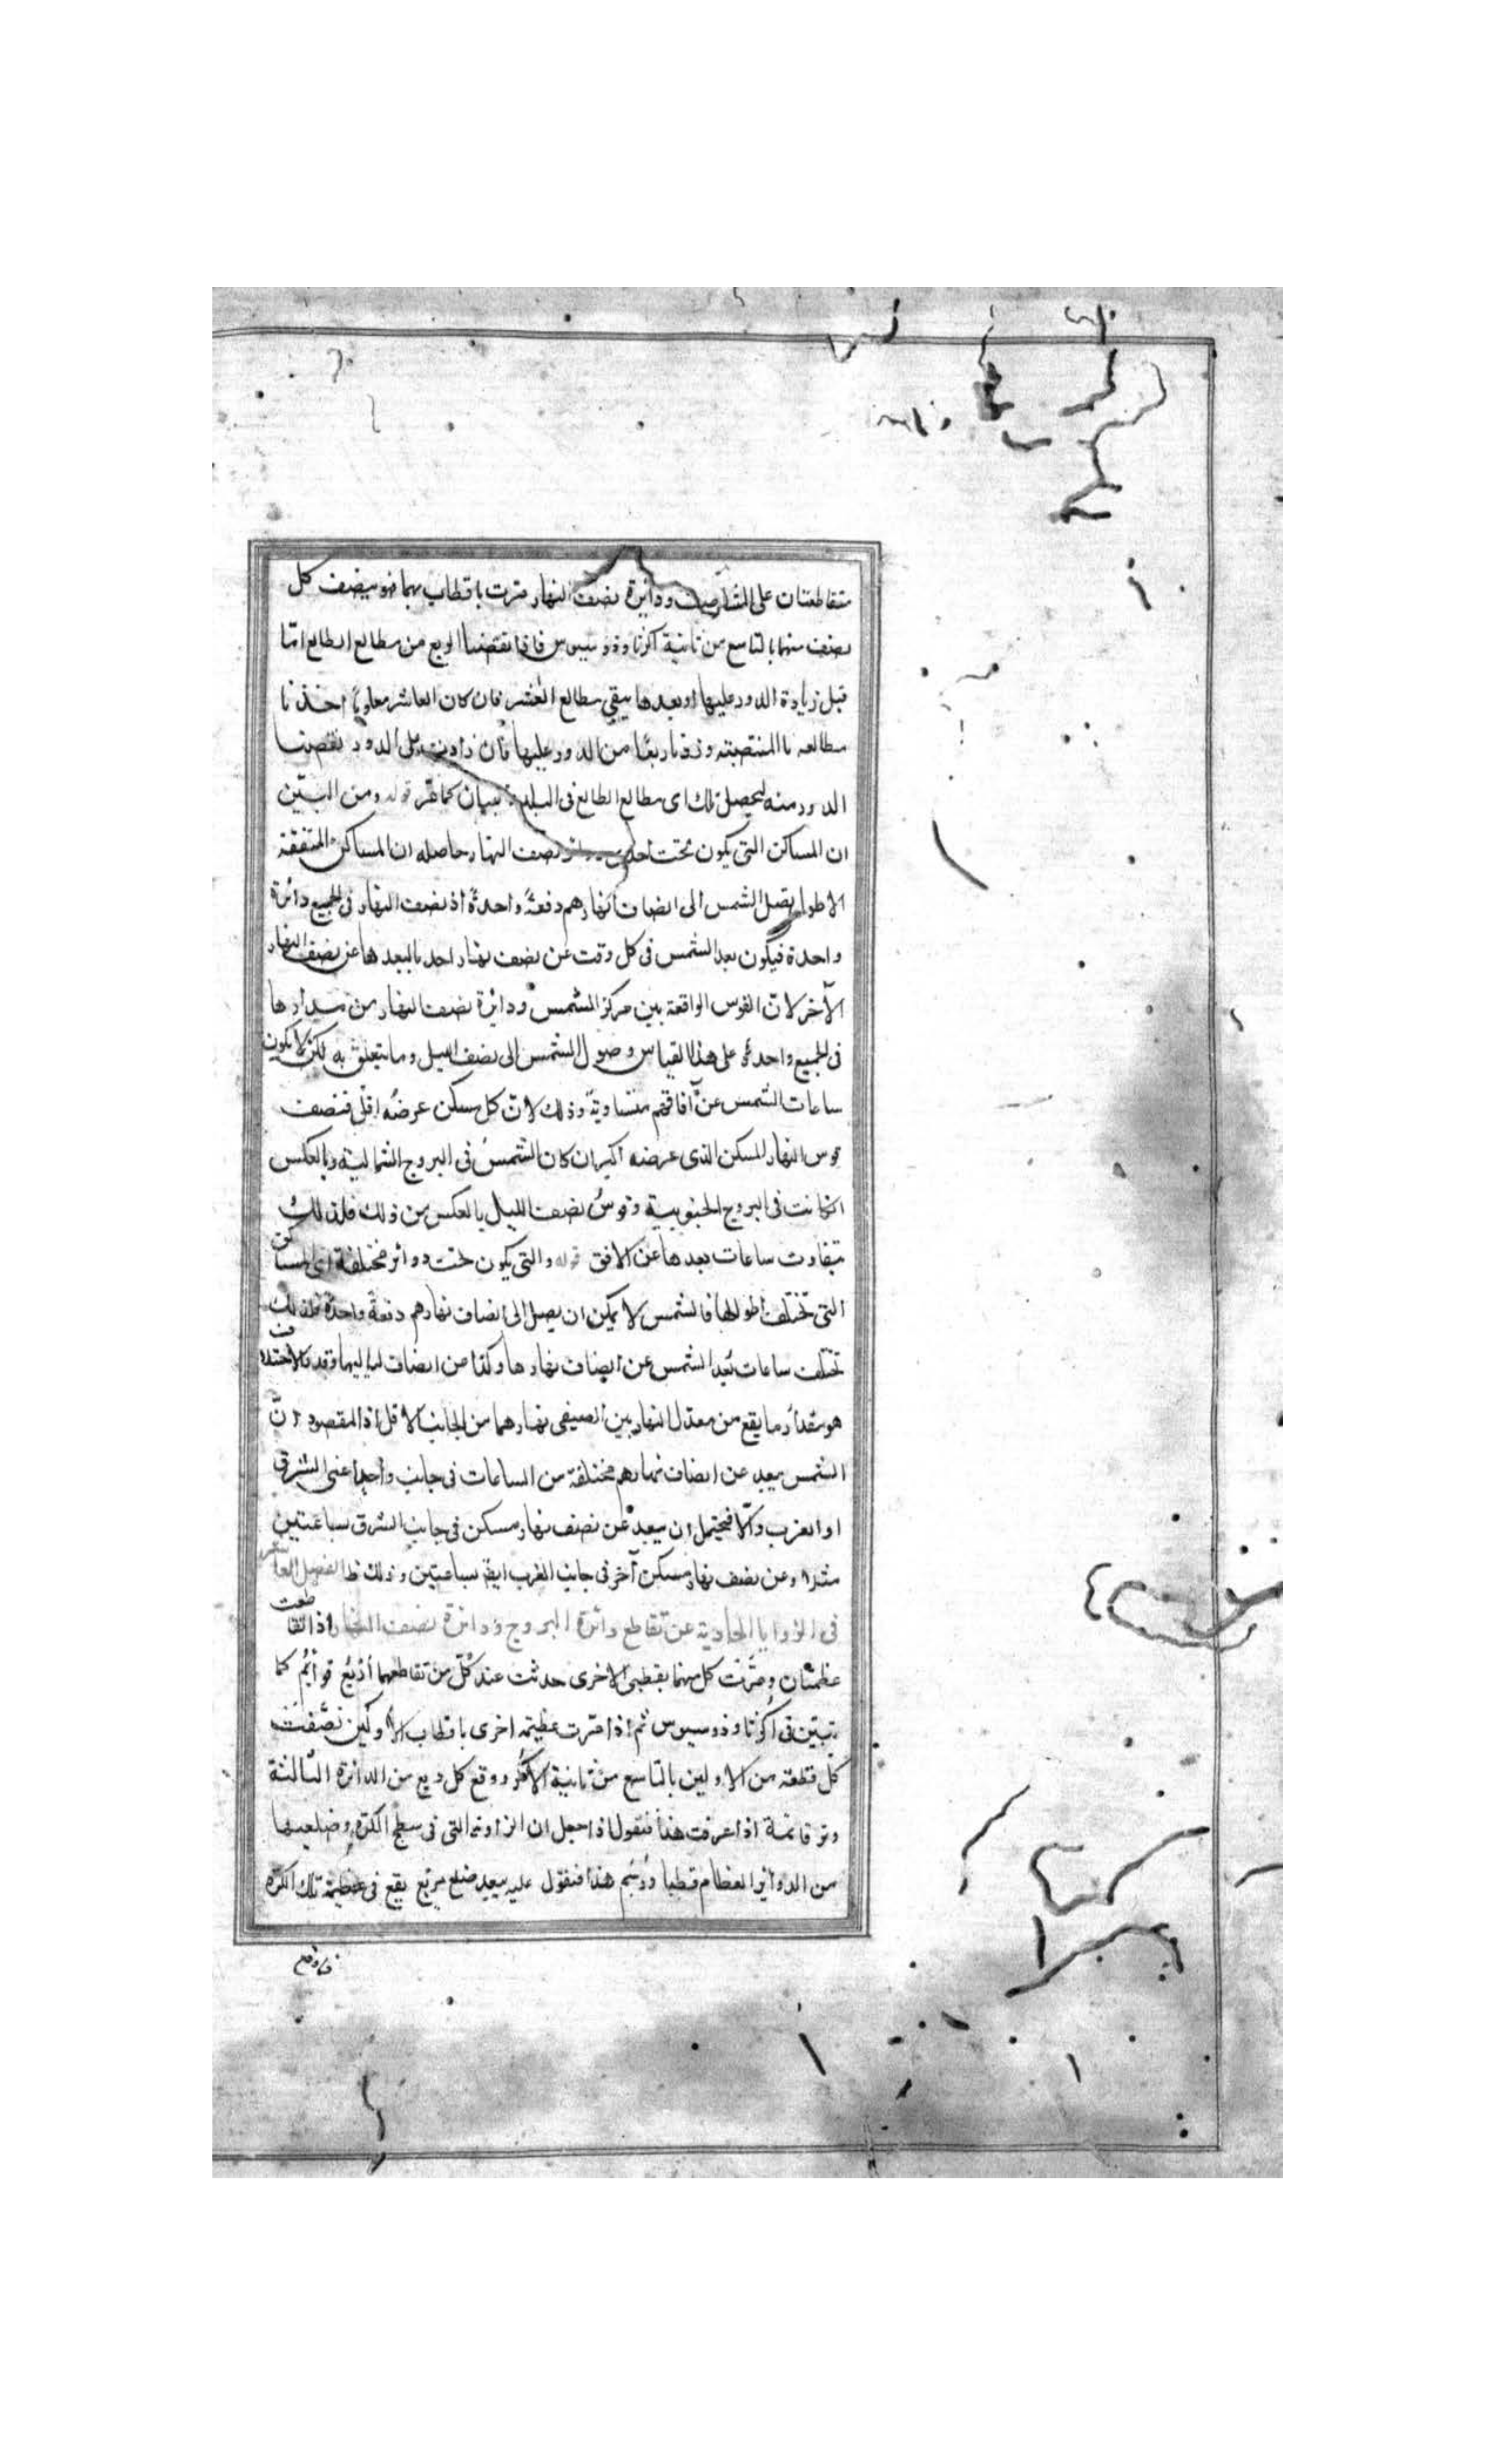 متقاطعتان على المشارق ودائرة نصف النهار مرت باقطاب بهما فهو ينصف كل
نصف منهما بالتاسع من ثانية اكرثاوذوسيوس فاذا نقصنا الربع من مطالع الطالع اما
قبل زيادة الدور عليها او بعدها يبقى مطالع العشر فان كان العاشر معلوما اخذنا
مطالعه بالمنتصبة وزدنا ربعا من الدور عليها فان زادت على الدور نقصنا
الدور منه ليحصل تلك اى مطالع الطالع فى البلد بيان كما مر قوله ومن البين
ان المساكن التى يكون تحت احدى دوائر نصف النهار حاصله ان المساكن المتفقة
الاطوال يصل الشمس الى انصاف نهارهم دفعة واحدة اذ نصف النهار فى الجميع دائرة
واحدة فيكون بعد الشمس فى كل وقت عن نصف نهار احد كبعدها عن نصف النهار
الآخر لان القوس الواقعة بين مركز الشمس ودائرة نصف النهار من مدارها
فى الجميع واحدة على هذا القياس وصول الشمس الى نصف الليل وما يتعلق به لكن لا يكون
ساعات الشمس عن آفاقهم متساوية وذلك لان كل مسكن عرضه اقل فنصف
قوس النهار للمسكن الذى عرضه اكبر ان كان الشمس فى البروج الشمالية وبالعكس
ان كانت فى البروج الجنوبية وقوس نصف الليل بالعكس من ذلك فلذلك
تتفاوت ساعات بعدها عن الافق قوله والتى يكون تحت دوائر مختلفة اى المساكن
التى تختلف اطوالها فالشمس لا يمكن ان يصل الى انصاف نهارهم دفعة واحدة فلذلك
تختلف ساعات بعد الشمس عن انصاف نهارها وكذا من انصاف لياليها وقدر الاختلاف
هو مقدار ما يقع من معدل النهار بين نصفى نهارهما من الجانب الاقل اذ المقصود ان
الشمس يبعد عن انصاف نهارهم مختلفة من الساعات فى جانب واحد اعنى الشرق
او الغرب والا فيحتمل ان يبعد عن نصف نهار مسكن فى جانب الشرق بساعتين
مثلا وعن نصف نهار مسكن آخر فى جانب الغرب ايضا بساعتين وذلك ظ الفصل العاشر
فى الزوايا الحادثة عن تقاطع دائرة البروج ودائرة نصف النهار اذا تقاطعت
عظيمتان ومرت كل منهما بقطبى الاخرى حدثت عند كل من تقاطعهما اربع قوائم كما
تبين فى اكرثاوذوسيوس ثم اذا مرت عظيمة اخرى باقطاب الاولين نصفت
كل قطعة من الاولين بالتاسع من ثانية الاكر ووقع كل ربع من الدائرة الثالثة
وتر قائمة اذا عرفت هذا فنقول اذا جعل ان الزاوية التى فى سطح الكرة وضلعيها
من الدوائر العظام قطبا ورسم هذا فنقول عليه ببعد ضلع مربع يقع فى عظيمة تلك الكرة